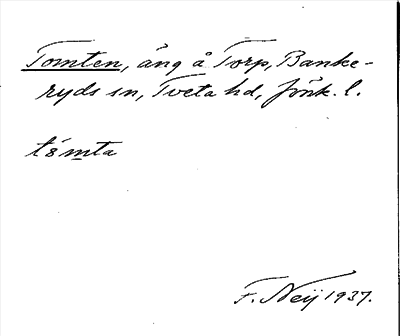 Tomten, äng å Torp, Banke-
ryds sn, Tveta hd, Jönk. l.
tómta
F. Neij 1937.